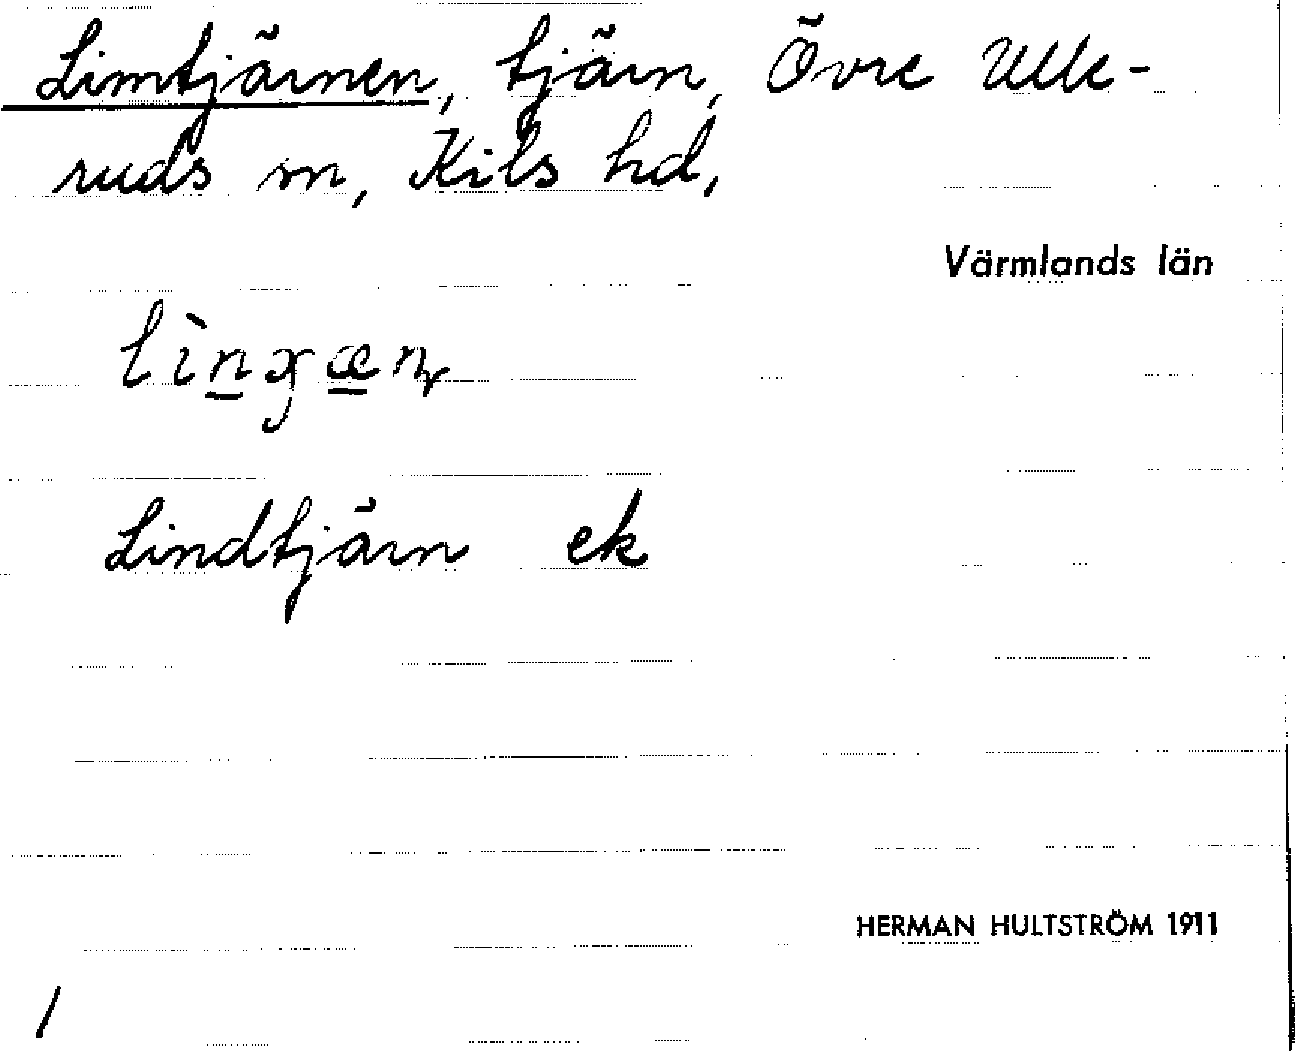 Limtjärnen, tjärn, Övre Ulle-
ruds sn, Kils hd,
Värmlands län
Lindtjärn ek
HERMAN HULTSTRÖM 1911
/